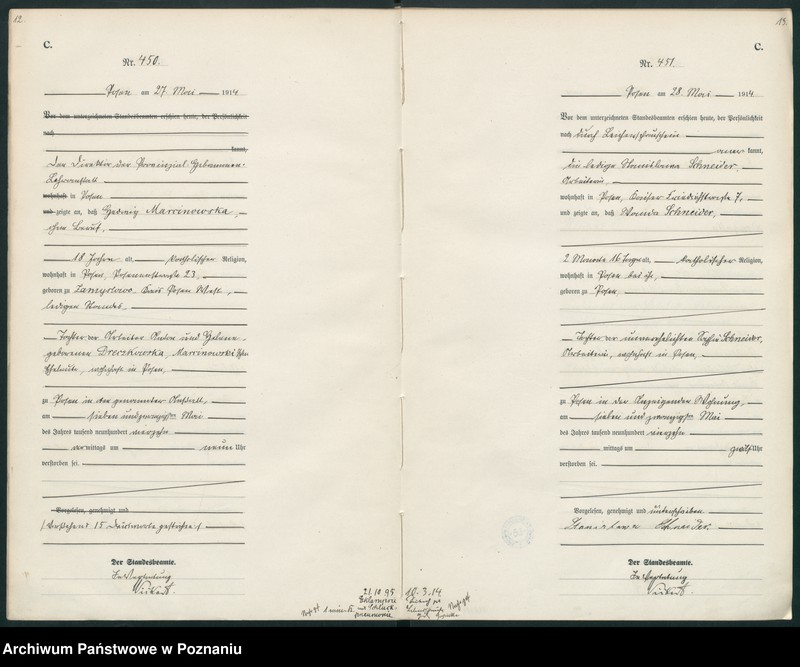 12.
C.
Nr. 450.
Posen am 27. Mai 1914
Vor dem unterzeichneten Standesbeamten erschien heute, der Persönlichkeit
nach
kannt,
Der Direktor der Provinzial-Hebammen-
Lehranstalt
wohnhaft in Posen
und zeigte an, daß Hedwig Marcinowska,
ohne Beruf,
18 Jahre alt, katholischer Religion,
wohnhaft in Posen, Posenerstraße 23,
geboren zu Zamyslowo, Kreis Posen West,
ledigen Standes,
Tochter der Arbeiter Anton und Helene
geborener Dreczkowska, Marcinowski'schen
Eheleute, wohnhaft in Posen,
zu Posen in der genannten Anstalt,
am sieben undzwanzigsten Mai
des Jahres tausend neunhundert vierzehn
vormittags um neun Uhr
verstorben sei.
Vorgelesen, genehmigt und
(Vorstehend 15 Druckworte gestrichen)
Der Standesbeamte.
In Vertretung
21.10.95
Eklampsie
pneumonie
13.
C.
Nr. 451
Posen am 28. Mai 1914
Vor dem unterzeichneten Standesbeamten erschien heute, der Persönlichkeit
nach durch Leichenschauschein
aner kannt,
die ledige Stanislawa Schneider,
Arbeiterin,
wohnhaft in Posen, Kaiser Friedrichstraße 7,
und zeigte an, daß Wanda Schneider,
2 Monate 16 Tage alt, katholischer Religion,
wohnhaft in Posen bei ihr,
geboren zu Posen,
Tochter der unverehelichten Schneider,
Arbeiterin, wohnhaft in Posen,
zu Posen in der Anzeigenden Wohnung,
am sieben und zwanzigsten Mai
des Jahres tausend neunhundert vierzehn
mittags um zwölf Uhr
verstorben sei.
Vorgelesen, genehmigt und unterschrieben
Stanislawa Schneider.
Der Standesbeamte.
In Vertretung
10.3.14
Archiwum Państwowe w Poznaniu